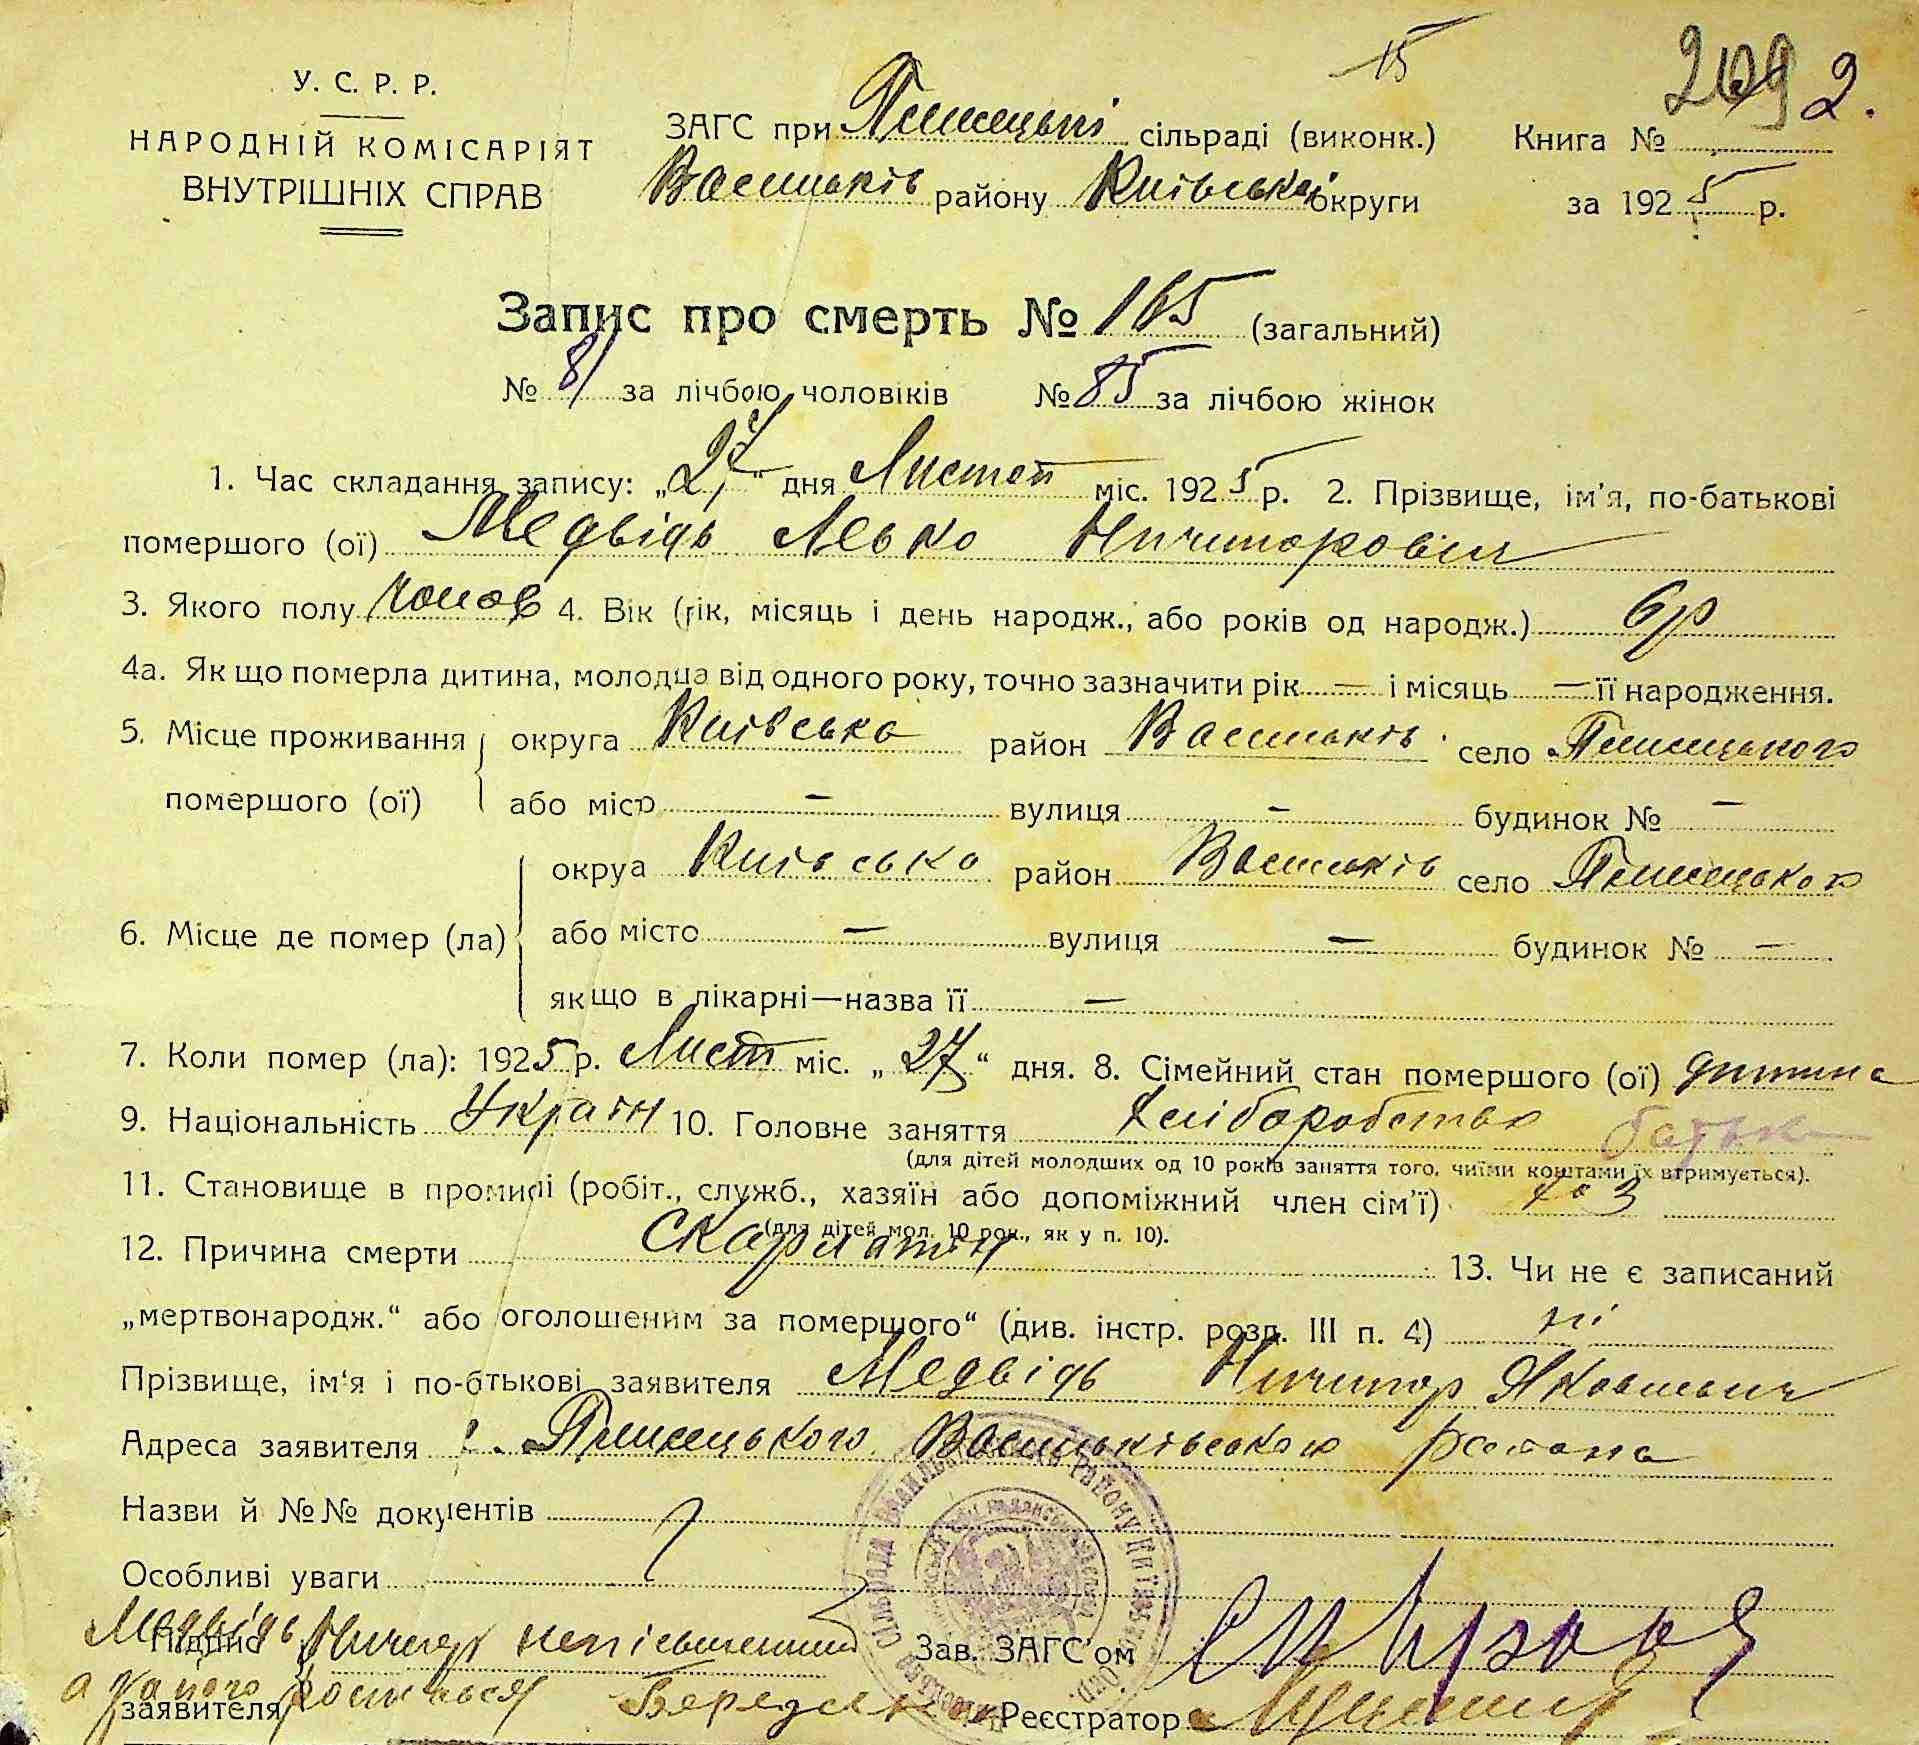 У. С. Р. Р.
НАРОДНІЙ КОМІСАРІЯТ
ВНУТРІШНІХ СПРАВ
15
ЗАГС при Плисецькі сільраді (виконк.)
Васильків району Київської округи
2.
Книга №
за 1925 р.
Запис про смерть № 165 (загальний)
№ 81 за лічбою чоловіків № 85 за лічбою жінок
1. Час складання запису: „27“ дня Листоп міс. 1925 р. 2. Прізвище, ім'я, по-батькові
помершого (ої) Медвідь Лєько Ничипорович
3. Якого полу чолов 4. Вік (рік, місяць і день народж., або років од народж.) 6 р
4а. Як що померла дитина, молодша від одного року, точно зазначити рік — і місяць — її народження.
5. Місце проживання округа Київська район Васильків село Плисецького
помершого (ої) або місто — вулиця — будинок № —
округа Київсько район Васильків село Плисецького
6. Місце де помер (ла) або місто — вулиця — будинок № —
якщо в лікарні—назва її —
7. Коли помер (ла): 1925 р. Лист міс. „27“ дня. 8. Сімейний стан помершого (ої) дитина
9. Національність Україн 10. Головне заняття хліборобство батька
(для дітей молодших од 10 років заняття того, чиїми коштами їх втримується).
11. Становище в промислі (робіт., служб., хазяїн або допоміжний член сім'ї)
(для дітей мол. 10 рок., як у п. 10).
12. Причина смерти Скарлатин 13. Чи не є записаний
„мертвонародж.“ або оголошеним за помершого“ (див. інстр. розд. III п. 4) ні
Прізвище, ім'я і по-бтькові заявителя Медвідь Ничипор Якович
Адреса заявителя с. Плисецького Васильківського района
Назви й №№ документів
Особливі уваги
Медвідь Ничипор неписьменний
Підпис Зав. ЗАГС'ом
а за нього росписався
заявителя Реєстратор